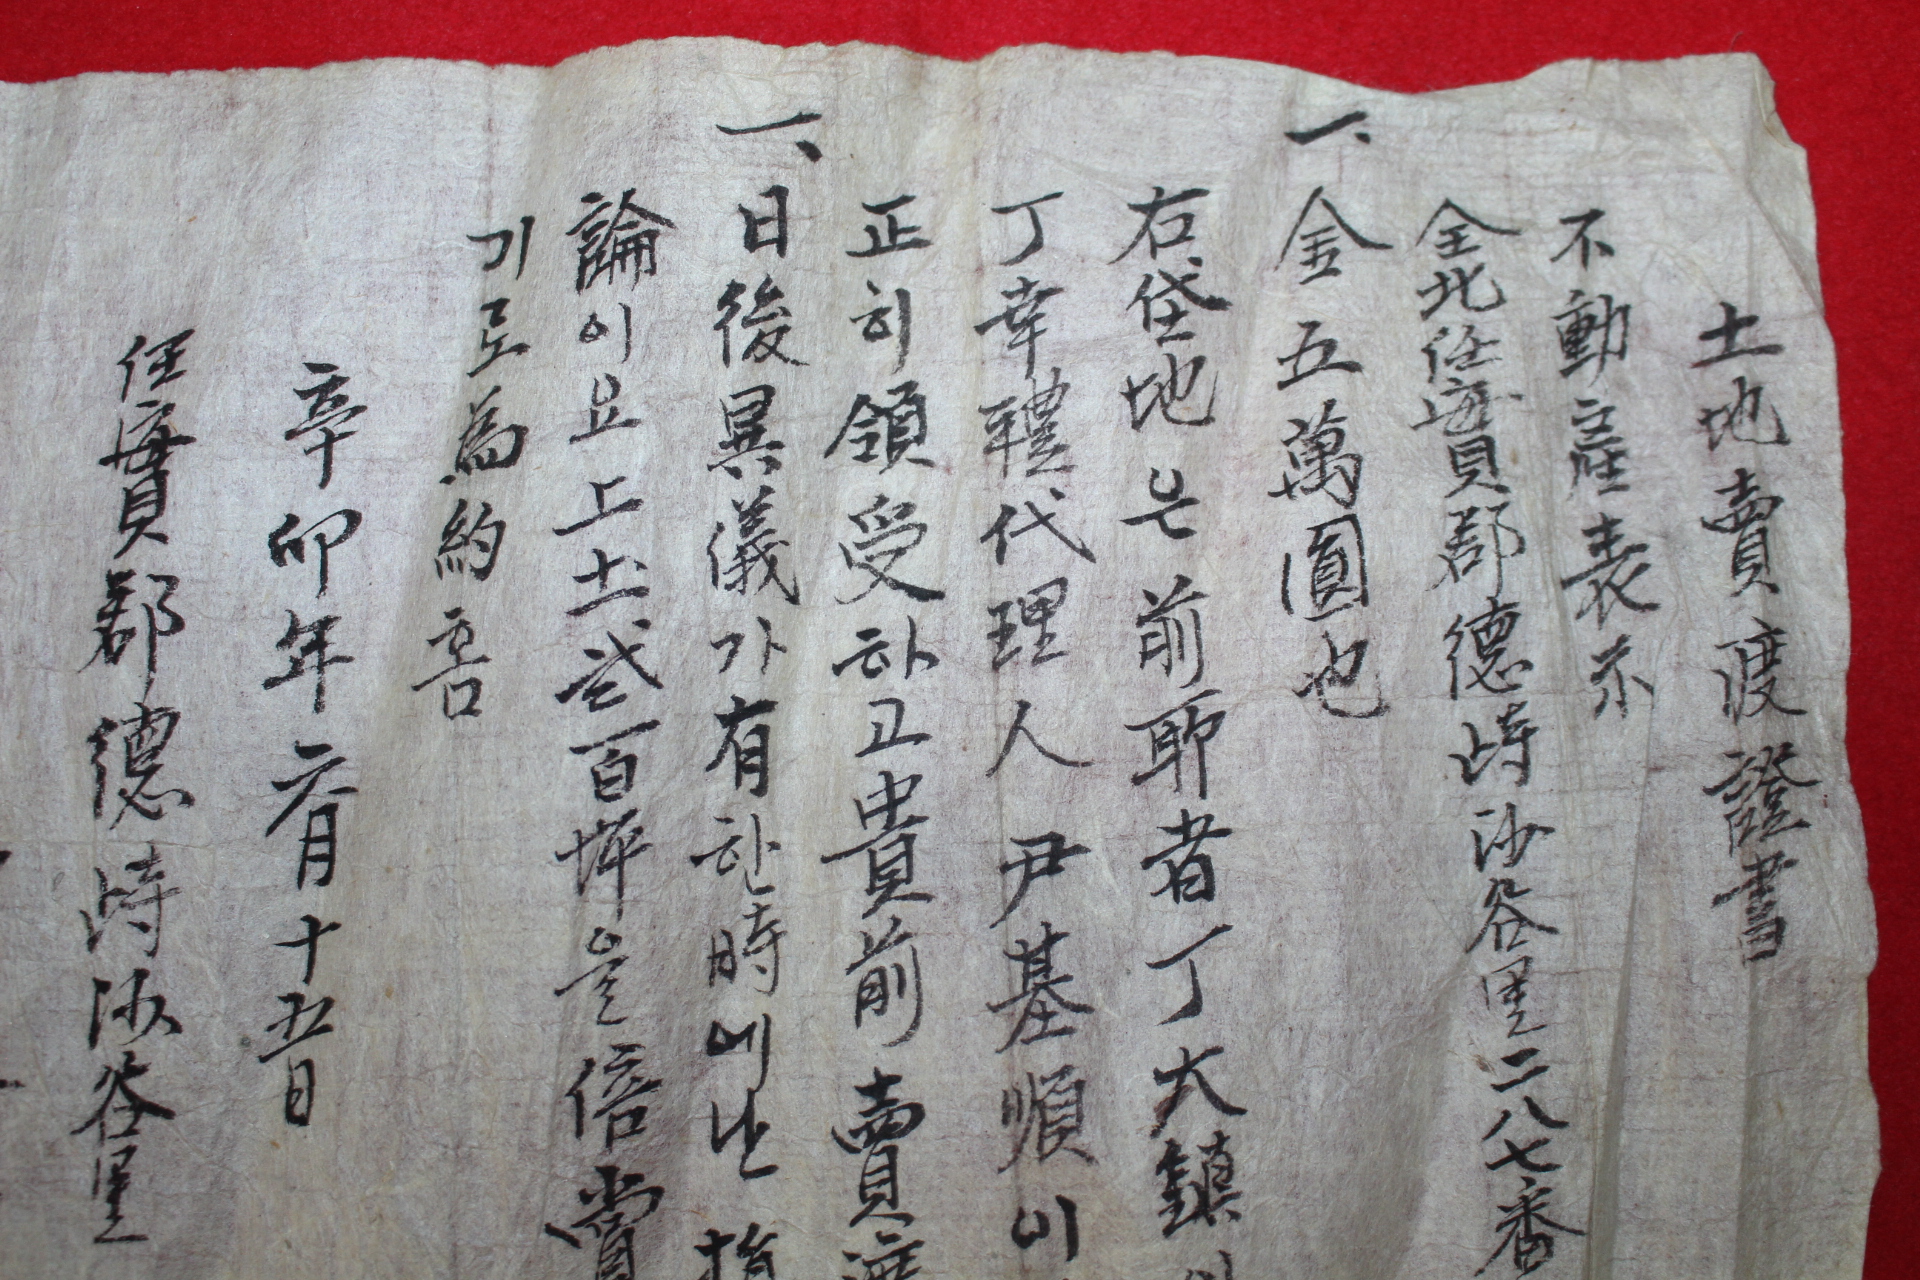 土地賣渡證書
不動產表示
全北任實郡德峙沙谷里二八七番
一、金五萬圓也
右垈地는 前耶者丁大鎭이
丁幸禮代理人尹基順이
正히領受하고貴前賣渡
一、日後異儀가有한時에난
論이요上土貳百坪을倍賞
기로爲約홈
辛卯年六月十五日
任實郡德峙沙谷里